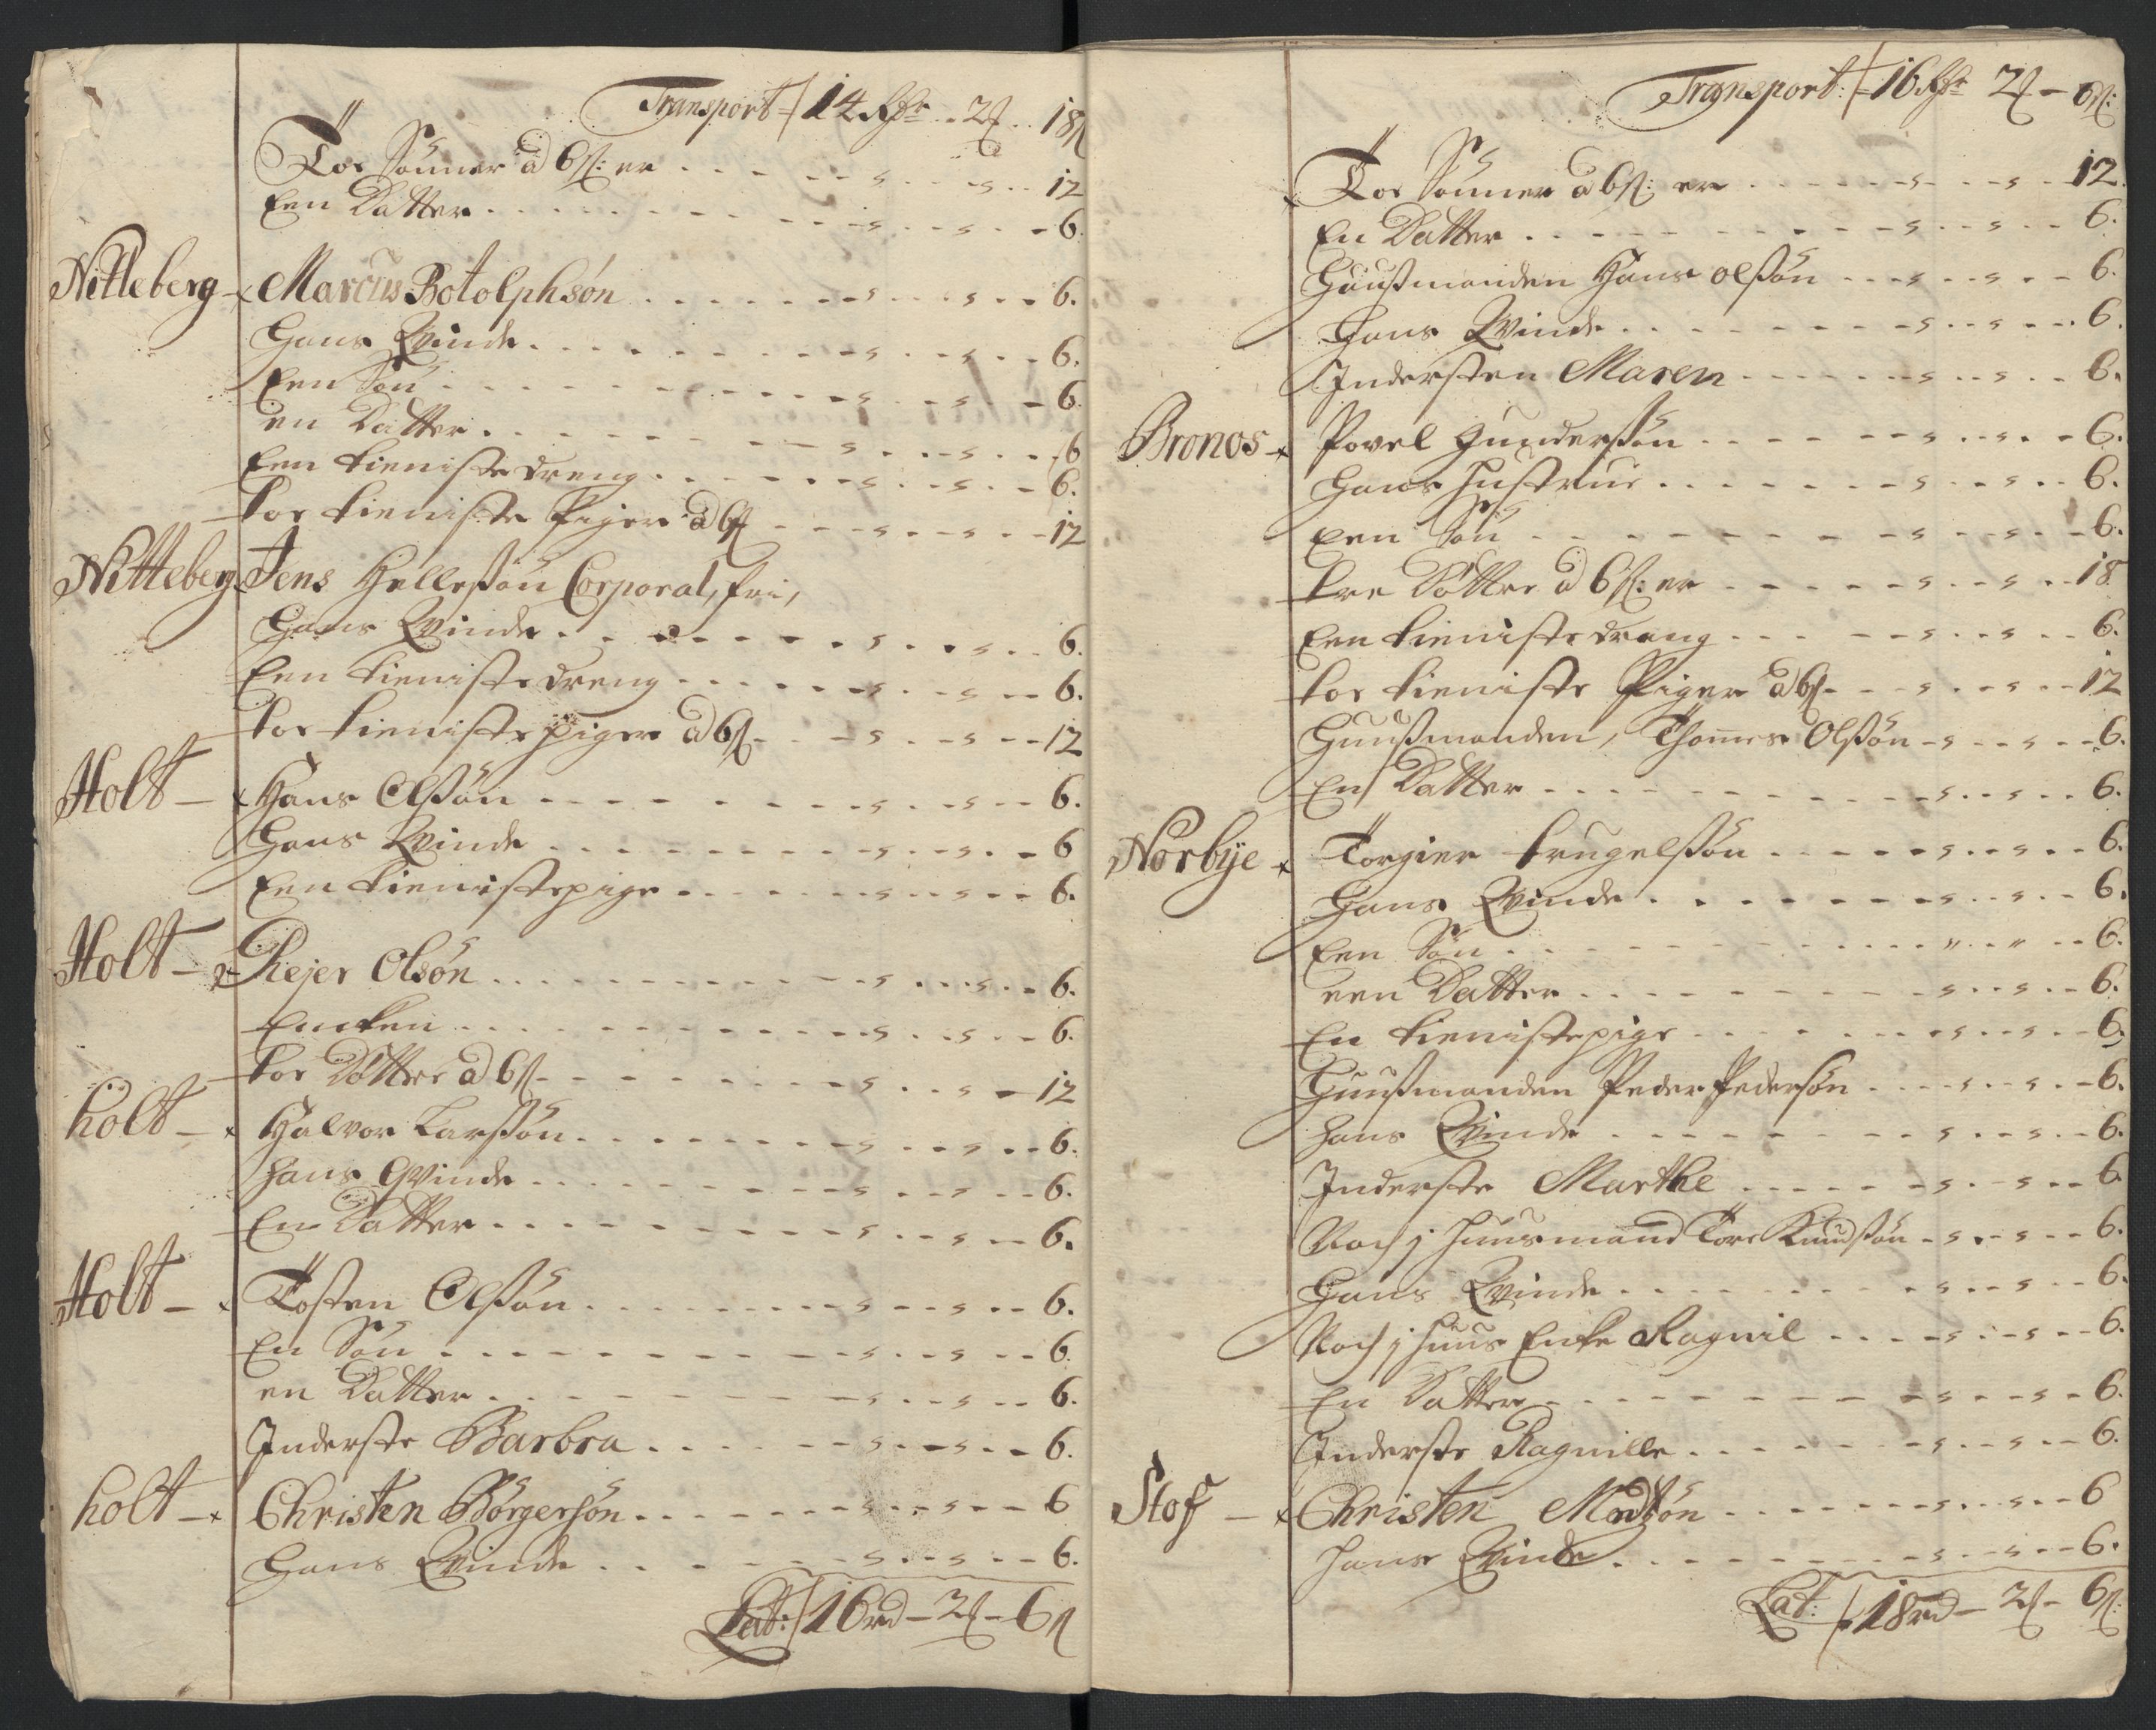 Transport / 14 Rdr - 2 ß - 18 ß
Toe Sønner a 6 ß: er - - 12
Een Datter - - 6.
Nitteberg - Marcus Botolphsøn - - 6.
Hans Qvinde - - 6.
Een Søn - - 6.
en Datter - - 6
Een tieniste dreng - - 6.
toe tieniste Piger a 6 ß - - 12
Nitteberg Jens Hellessøn Corporal, fri,
Hans Qvinde - - 6.
Een tieniste dreng - - 6.
toe tieniste piger a 6 ß - - 12
Holt - Hans Olssøn - - 6.
Hans Qvinde - - 6
Een tienistepige - - 6.
Holt - Rejer Olsøn - - 6.
Encken - - 6.
toe Døttre a 6 ß - - 12
holt - Halvor Larssøn - - 6.
Hans Qvinde - - 6.
En Datter - - 6.
Holt - Tosten Olssøn - - 6.
En Søn - - 6.
en Datter - - 6.
Inderste Barbra - - 6.
holt - Christen Børgersøn - - 6
Hans Qvinde - - 6.
Lat: / 16 rd - 2 ß - 6 ß
Transport: / 16 Rdr 2 ß - 6 ß:
Toe Sønner a 6 ß: er - - 12.
En Datter - - 6.
Huusmanden Hans olssøn - - 6.
Hans Qvinde - - 6.
Indersten Maren - - 6.
Bronos - Povel Gunderssøn - - 6.
Hans Hustrue - - 6.
Een Søn - - 6.
tre Døttre a 6 ß: er - - 18
Een tieniste dreng - - 6.
toe tieniste Piger a 6 ß - - 12
Huusmanden, Thomes Olssøn - - 6.
En Datter - - 6.
Norbÿe - Torgier trugelssøn - - 6.
Hans Qvinde - - 6.
Een Søn - - 6.
een Datter - - 6.
En tienistepige - - 6.
Huusmanden Peder Pedersøn - - 6.
Hans Qvinde - - 6.
Inderste Marthe - - 6
Noch j huusmand Tore Knudssøn - - 6.
Hans Qvinde - - 6.
Noch j huus Enke Ragnil - - 6.
En Datter - - 6.
Inderste Ragnille - - 6.
Stof - Christen Madsøn - - 6
Hans Qvinde - - 6.
Lat: / 18 rd - 2 ß - 6 ß: